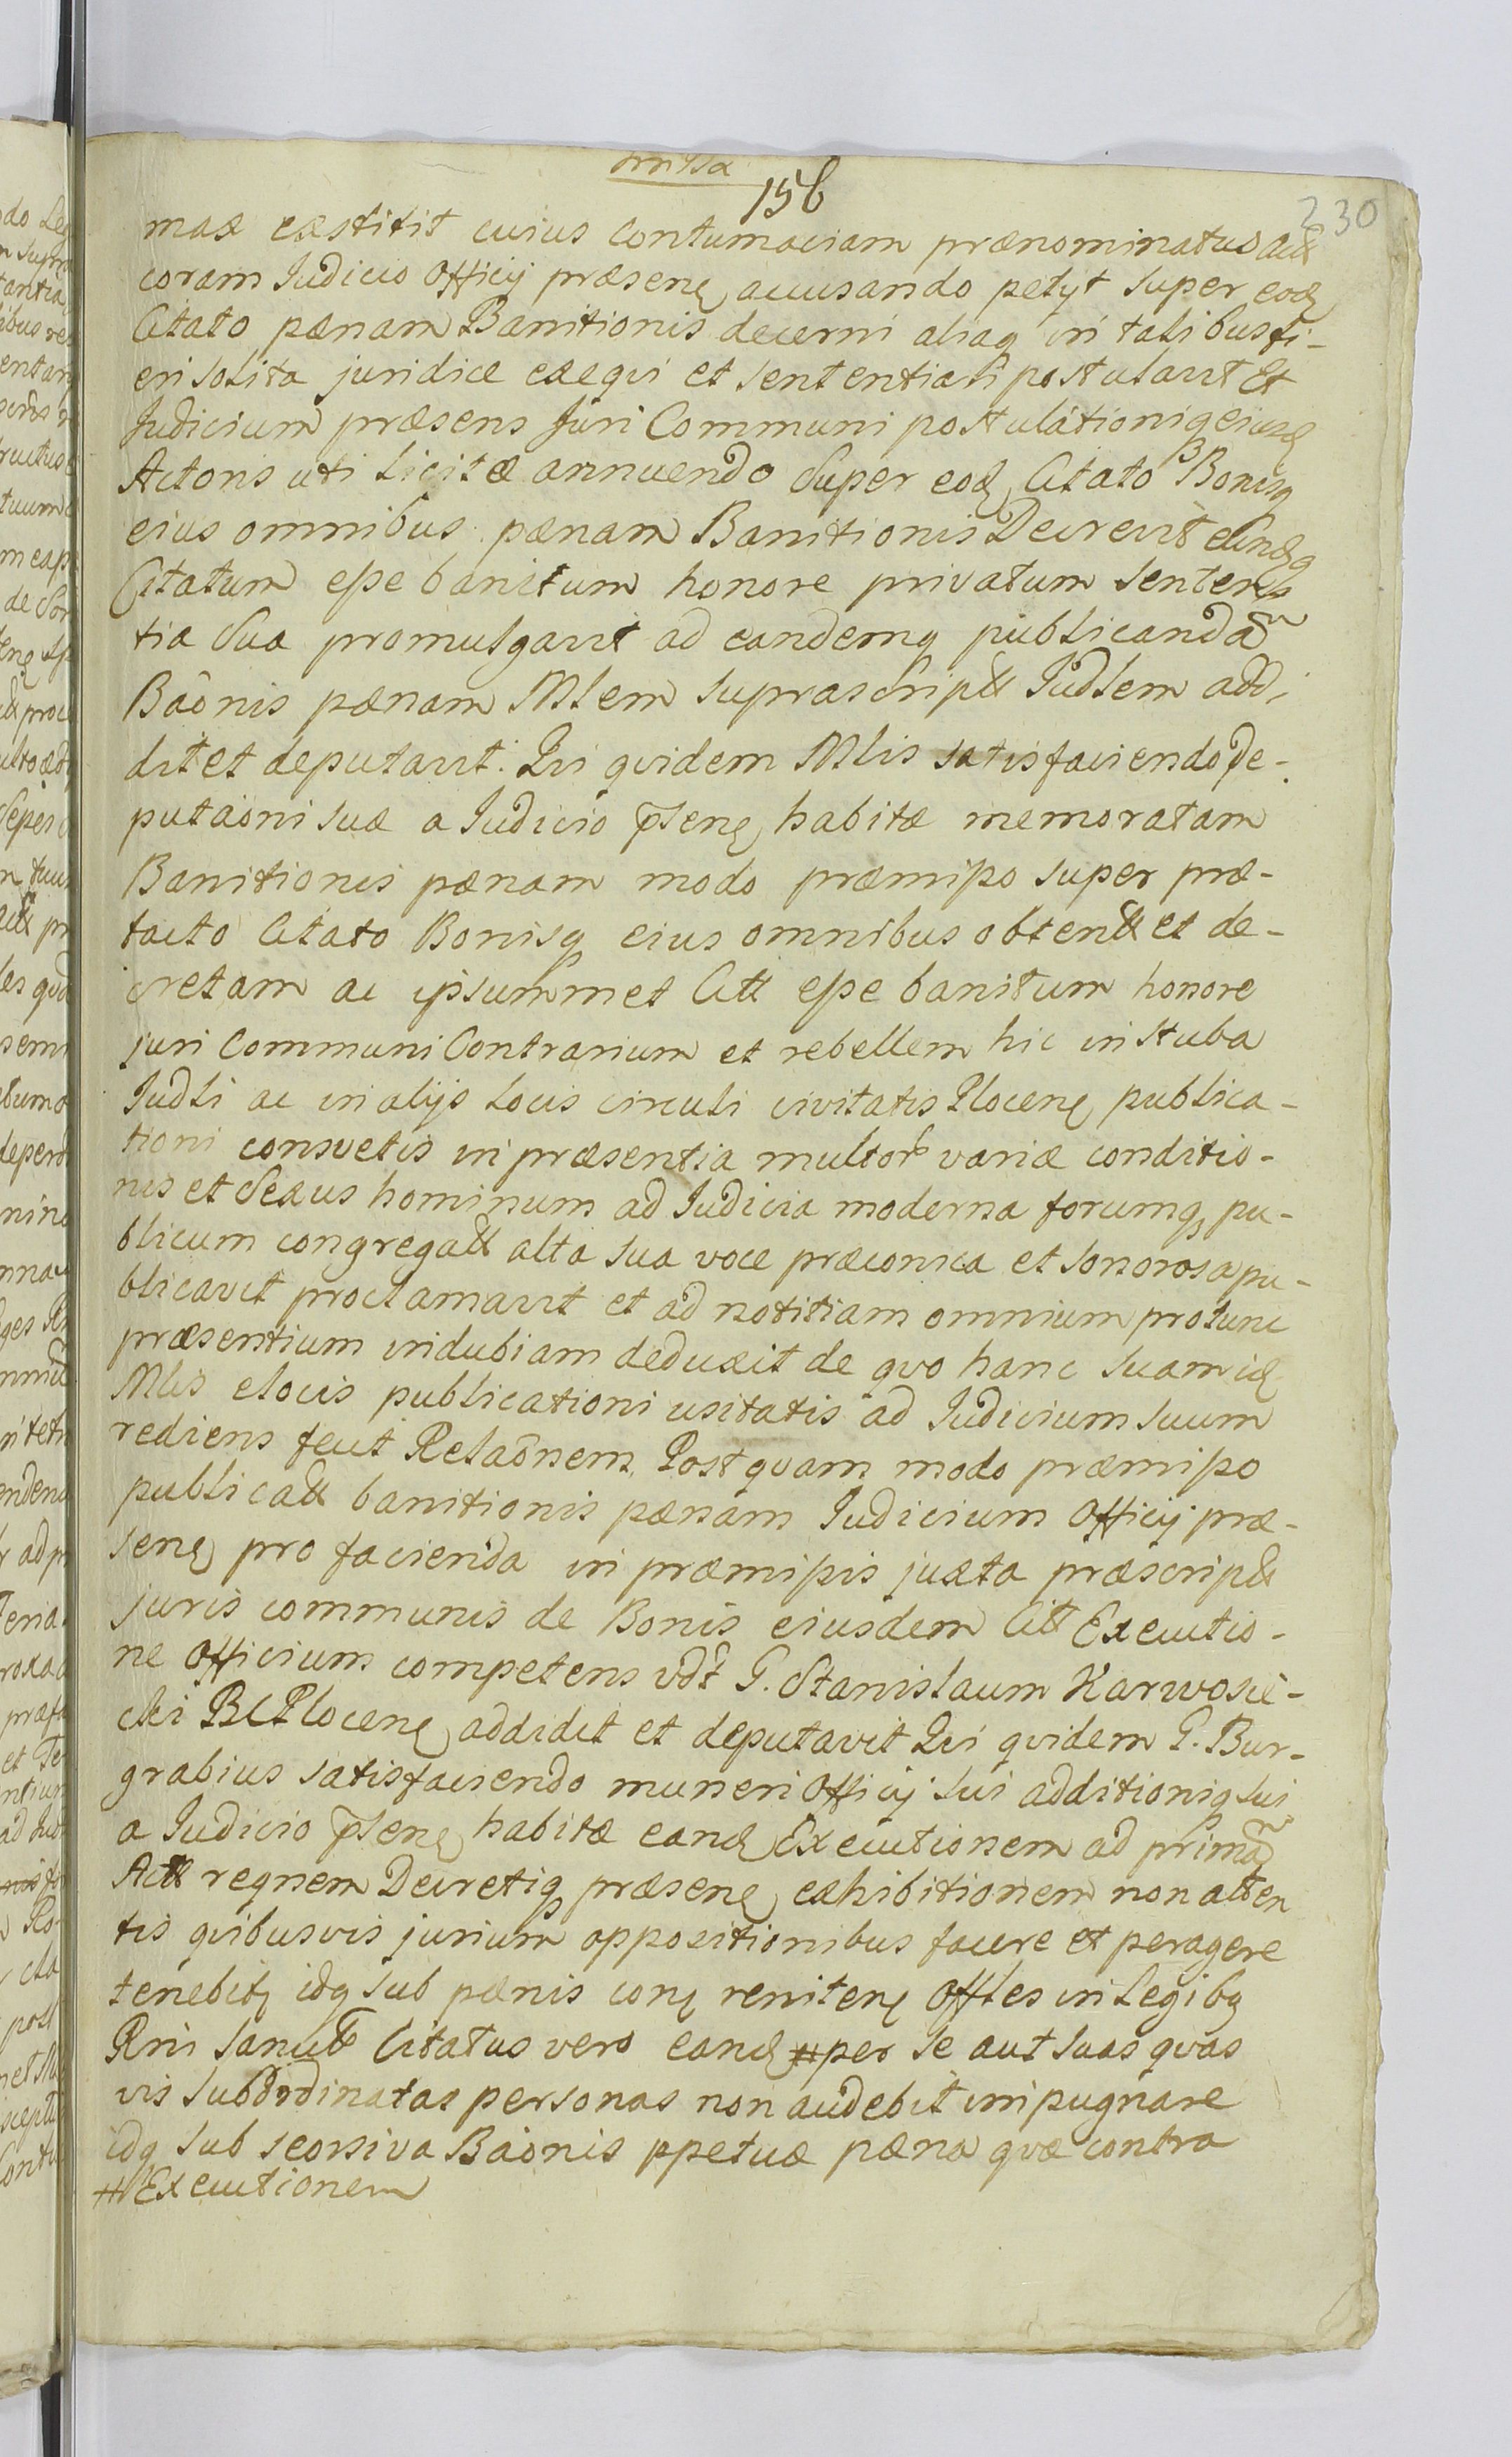 156
230
mae exstitit cuius Contumaciam prænominatus act
coram Iudicio Officij præsenę accusando petyt super eodę
Citato pænam Banitionis decerni aliaq in talibus fi-
eri solita juridice exeqvi et sententiari postulavit Et
Judicium præsens Juri Communi postulationiq eiusdę
Actoris uti licitæ annuendo Super eodę Citato Bonisq
eius omnibus pænam Banitionis Decrevit eundęq
Citatum esse banitum honore privatum senten
tia Sua promulgavit ad eandemq publicandã
Baõnis pænam Mlem suprascriptt Iudlem addi
dit et deputavit. Qvi qvidem Mlis satisfaciendo De-
putaõni suæ a Iudicio p̃senę habitæ memoratam
Banitionis pænam modo præmisso super præ-
tacto Citato Bonisq eius omnibus obtentt et de-
cretam ac ipsummet Citt esse banitum honore
juri Communi Contrarium et rebellem hic in stuba
Iudli ac in alijs Locis circuli civitatis Plocenę publica-
tioni consvetis in præsentia multor variæ conditio-
nis et Sexus hominum ad Iudicia moderna forumq pu-
blicum congregatt alta sua voce præconica et sonorosa pu-
blicavit proclamavit et ad notitiam omnium protunc
præsentium indubiam deduxit de qvo hanc suam idę
Mlis elocis publicationi usitatis ad Iudicium suum
rediens fecit Relaõnem. Post qvam modo præmisso
publicatt banitionis pænam Iudicium Officij præ-
senę pro facienda in præmissis juxta præscriptt
juris communis de Bonis eiusdem Citt Executio-
ne Officium competens vdt G. Stanislaum Karwosie-
cki BCPlocenę addidit et deputavit Qvi qvidem G. Bur-
grabius satisfaciendo muneri Officij sui additioniq sui
a Iudicio p̃senę habitæ eandę Executionem ad primã
Actt reqnem Decretiq præsenę exhibitionem non atten
tis qvibusvis jurium oppositionibus facere et peragere
tenebitę idq sub pænis conę renitenę Offles in Legibq
Rni sancitt Citatus vero eandę # per se aut suas qvas
vis subordinatas personas non audebit impugnare
idq sub seorsiva Baõnis ppetuæ pæna qvæ contra
# Executionem